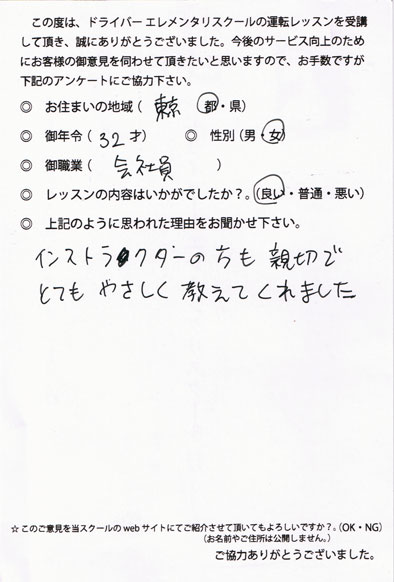 この度は、ドライバー エレメンタリスクールの運転レッスンを受講
して頂き、誠にありがとうございました。今後のサービス向上のため
にお客様の御意見を伺わせて頂きたいと思いますので、お手数ですが
下記のアンケートにご協力下さい。
◎ お住まいの地域（ 東京 都・県）
◎ 御年令（ 32 才） ◎ 性別（男・女）
◎ 御職業（ 会社員 ）
◎ レッスンの内容はいかがでしたか？。（良い・普通・悪い）
◎ 上記のように思われた理由をお聞かせ下さい。
インストラクターの方も 親切で
とても やさしく 教えて くれました
☆このご意見を当スクールの web サイトにてご紹介させて頂いてもよろしいですか？。（OK・NG）
（お名前やご住所は公開しません。）
ご協力ありがとうございました。